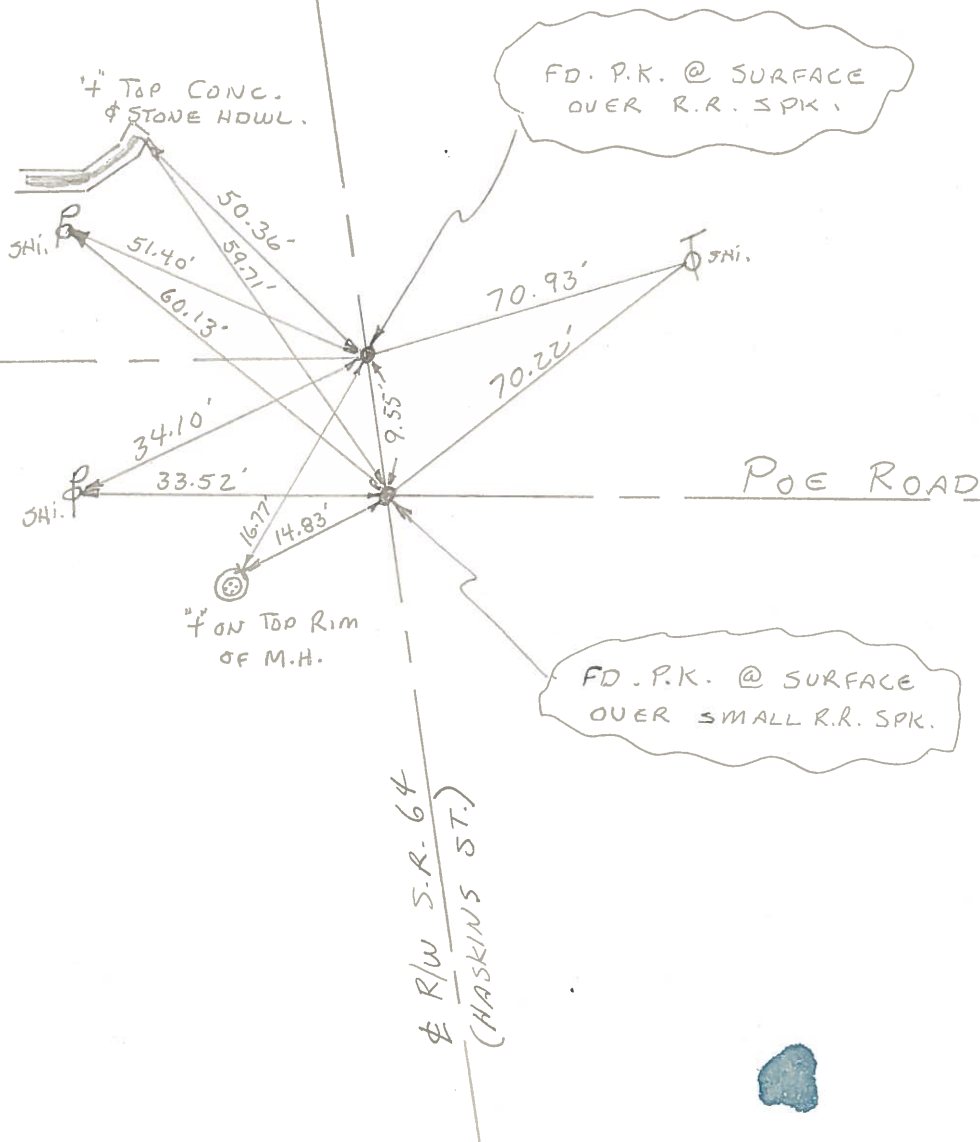 "+" TOP CONC.
& STONE HDWL.
FD. P.K. @ SURFACE
OVER R.R. SPK.
50.36'
59.71'
SHI.
51.40'
60.13'
70.93'
SHI.
70.22'
9.55'
34.10'
33.52'
SHI.
16.77'
14.83'
POE ROAD
"+" ON TOP RIM
OF M.H.
FD. P.K. @ SURFACE
OVER SMALL R.R. SPK.
℄ R/W S.R. 64
(HASKINS ST.)